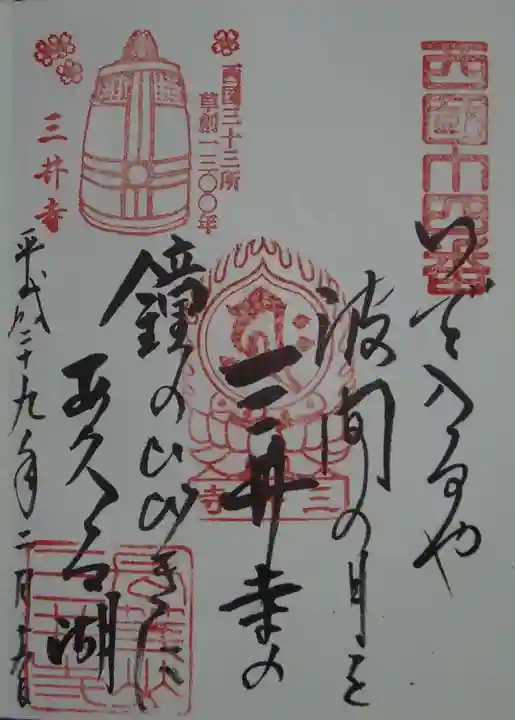 西國十四番
いで入るや
波間の月を
三井寺の
三井寺
鐘のひびきに
あ久る湖
西国三十三所
草創一三〇〇年
三井寺
平成二十九年二月